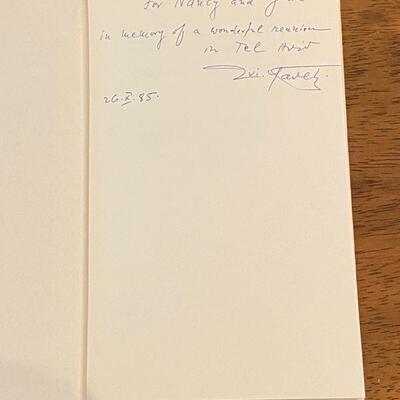 for Nancy and
in memory of a wonderful reunion
in Tel Aviv
Zvi
26.X.85.